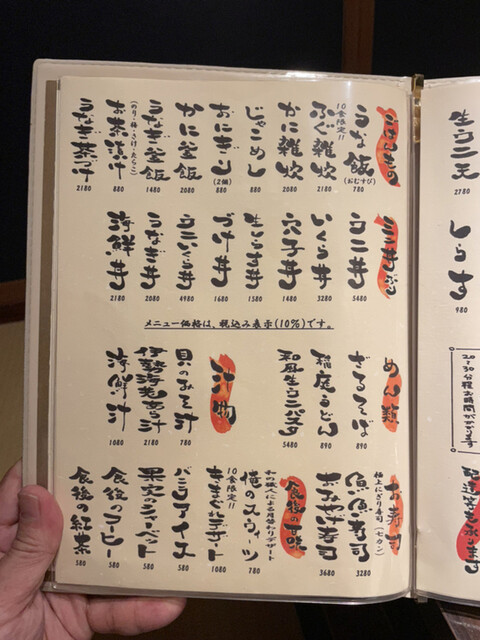 ごはんもの
うな飯
(おむすび)
780
10食限定!!
ふぐ雑炊
2180
かに雑炊
2080
じゃこめし
880
おにぎり
(2個)
880
かに釜飯
2080
うなぎ釜飯
1480
お茶漬け
(のり・梅・さけ・たらこ)
880
うなぎ茶づけ
2180
ミニ丼ぶり
ウニ丼
5480
いくら丼
3280
穴子丼
1480
生しらす丼
1580
づけ丼
1680
ウニいくら丼
4980
うなぎ丼
2080
海鮮丼
2180
メニュー価格は、税込み表示(10%)です。
めん類
ざるそば
890
稲庭うどん
890
和風生ウニパスタ
5480
汁物
貝のみそ汁
780
伊勢海老あら汁
2180
海鮮汁
1080
お寿司
極上にぎり寿司(七カン)
魚魚寿司
3280
おみやげ寿司
3680
食後の甘味
和の職人による月替わりデザート
俺のスウィーツ
780
10食限定!!
きまぐれデザート
1080
バニラアイス
580
果実のシャーベット
580
食後のコーヒー
580
食後の紅茶
580
生ウニ天
2780
しらす
980
20~30分程お時間がかかります
配達
承ります